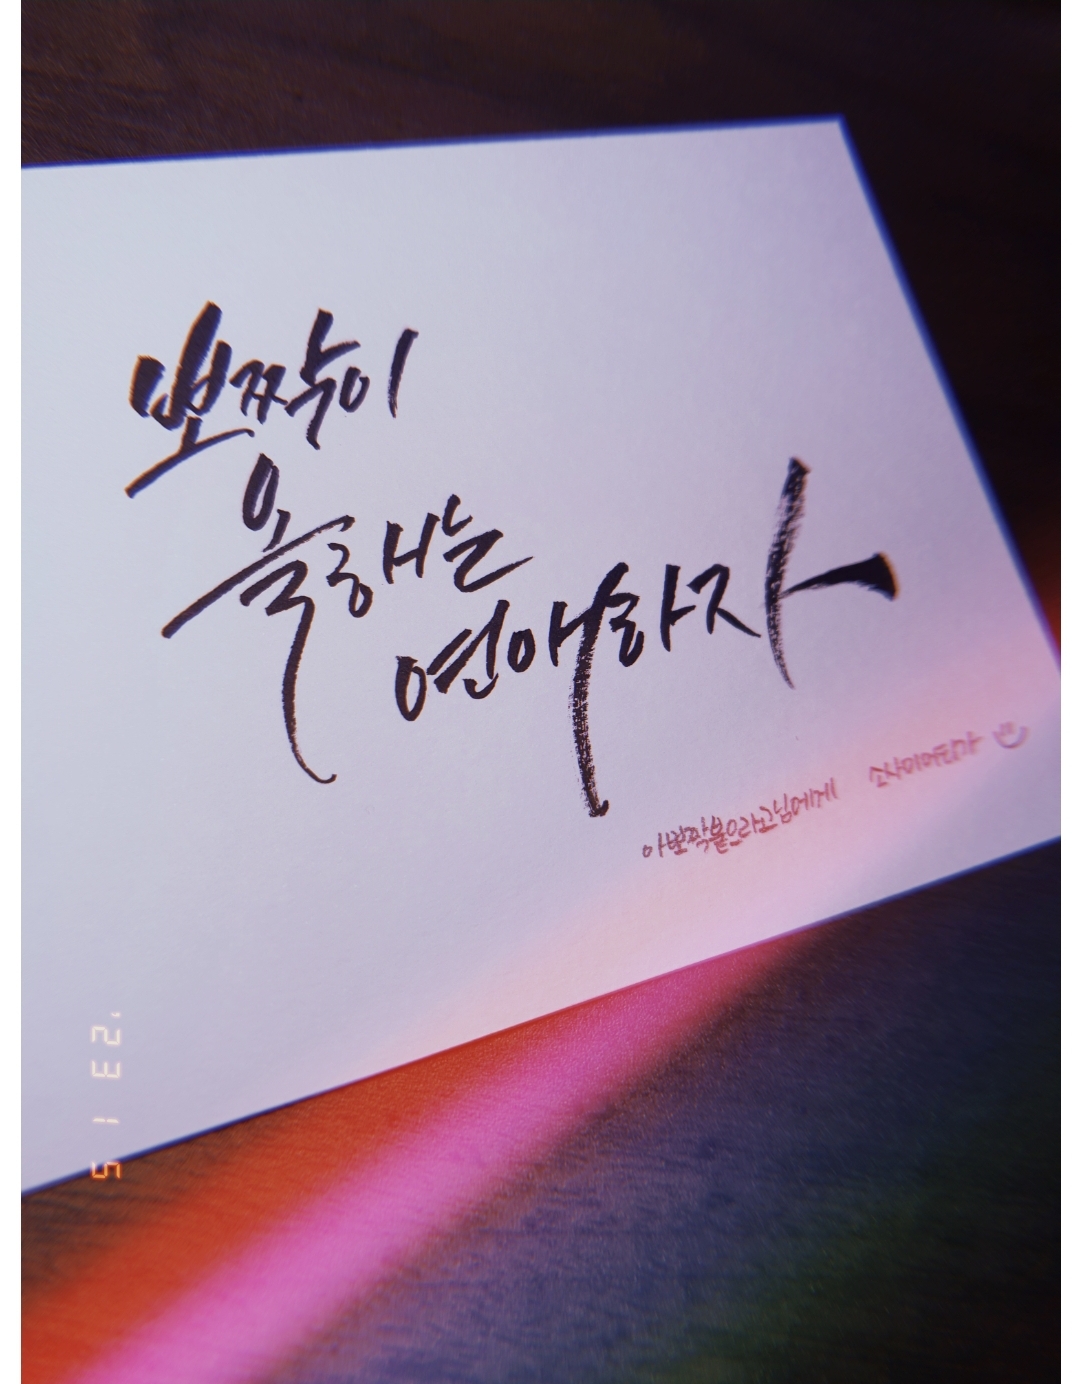 뽀짝이
올해는
연애하자
아뽀짝붙으라고님에게 소사이어티가
'23 1 5